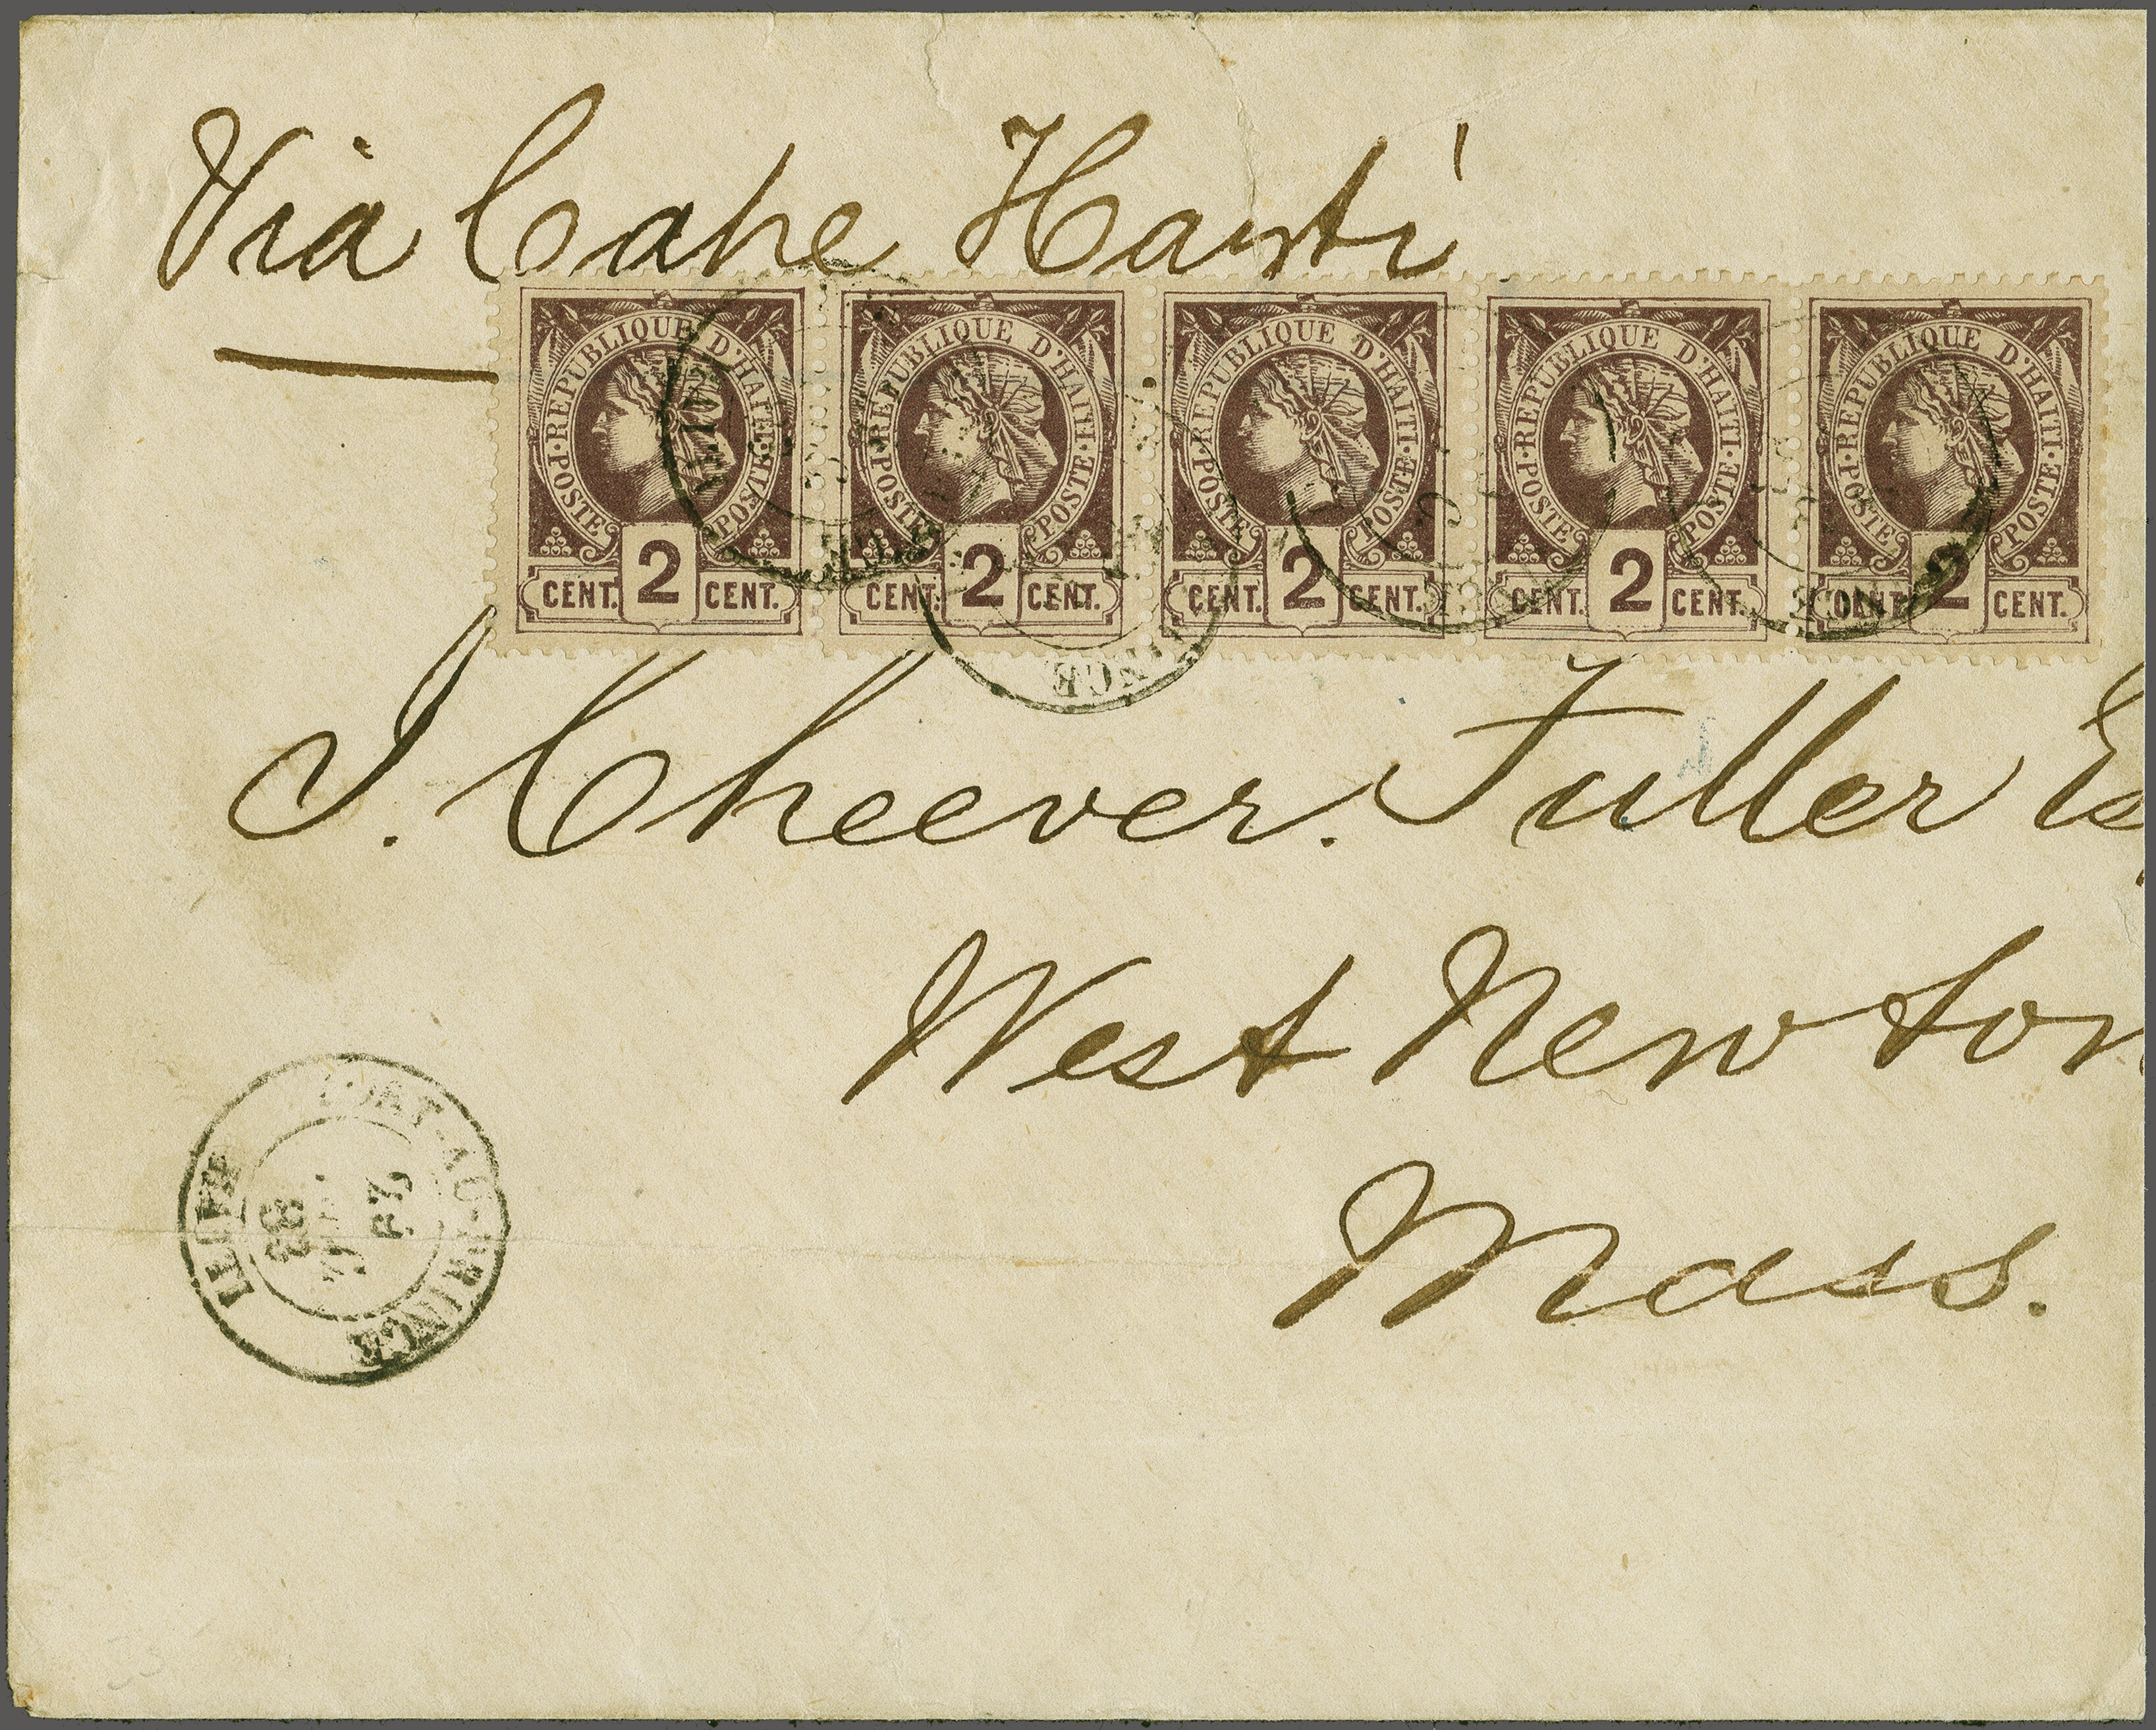 Via Cape Hayti
REPUBLIQUE D'HAITI POSTE POSTE
CENT. 2 CENT.
REPUBLIQUE D'HAITI POSTE POSTE
CENT. 2 CENT.
REPUBLIQUE D'HAITI POSTE POSTE
CENT. 2 CENT.
REPUBLIQUE D'HAITI POSTE POSTE
CENT. 2 CENT.
REPUBLIQUE D'HAITI POSTE POSTE
CENT. 2 CENT.
J. Cheever. Fuller Es
West Newton
Mass.
PORT-AU-PRINCE
HAITI